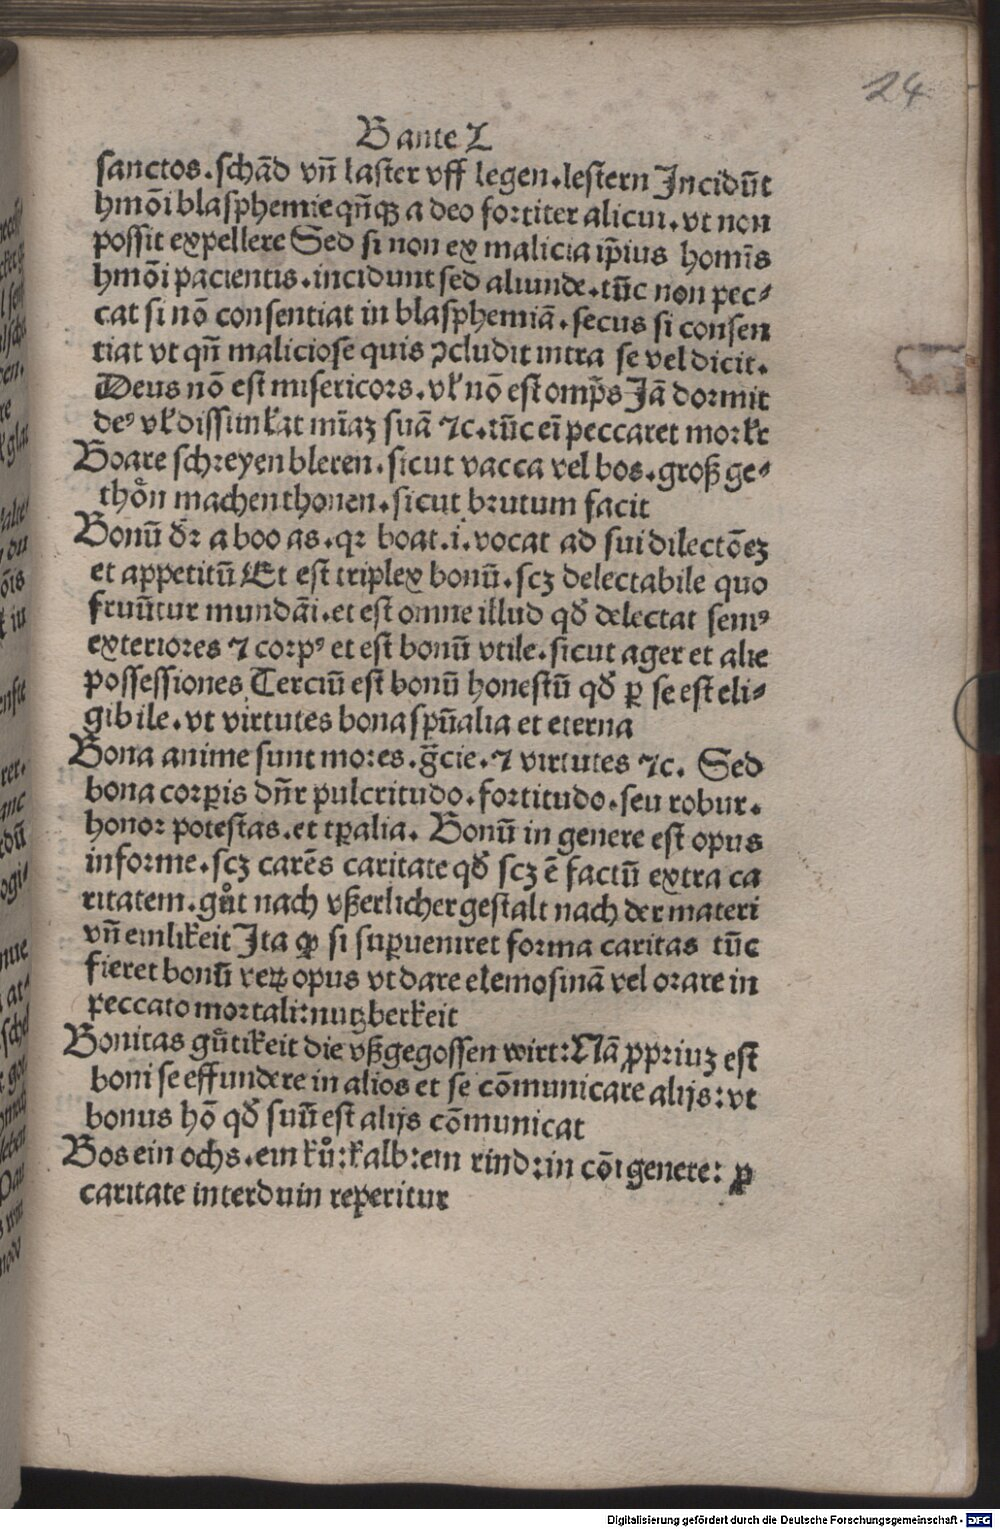 24
B ante L
sanctos. schād vñ laster vff legen. lestern Incidūt
hmōi blasphemie qñqꝫ a deo fortiter alicui. vt non
possit expellere Sed si non ex malicia ip̄ius homīs
hmōi pacientis. incidunt sed aliunde. tūc non pec⸗
cat si nō consentiat in blasphemiā. secus si consen
tiat vt qñ maliciose quis ꝯcludit intra se vel dicit.
Deus nō est misericors. vł nō est omp̄s Jā dormit
deꝰ vł dissimłat mīaꝫ suā ⁊c. tūc eī peccaret morłr
Boare schreyen bleren. sicut vacca vel bos. groß ge⸗
thoͤn machen thonen. sicut brutum facit
Bonū dr̄ a boo as. qꝛ boat. i. vocat ad sui dilectōeꝫ
et appetitū Et est triplex bonū. scꝫ delectabile quo
fruūtur mundāi. et est omne illud qð delectat sensꝰ
exteriores ⁊ corpꝰ et est bonū vtile. sicut ager et alie
possessiones Terciū est bonū honestū qð ꝑ se est eli⸗
gibile. vt virtutes bona spūalia et eterna
Bona anime sunt mores. gr̄cie. ⁊ virtutes ⁊c. Sed
bona corꝑis dñr pulcritudo. fortitudo. seu robur.
honor potestas. et tꝑalia. Bonū in genere est opus
informe. scꝫ carēs caritate qð scꝫ ē factū extra ca
ritatem. guͦt nach vßerlicher gestalt nach der materi
vñ emlikeit Ita ꝙ si suꝑueniret forma caritas tūc
fieret bonū veꝝ opus vt dare elemosinā vel orare in
peccato mortali: nutzberkeit
Bonitas guͤtikeit die vßgegossen wirt: Nā ꝓpriuꝫ est
boni se effundere in alios et se cōmunicare alijs: vt
bonus hō qð suū est alijs cōmunicat
Bos ein ochs. ein kuͦ: kalb: ein rind: in cōi genere: ꝓ
caritate interduin reꝑeritur
Digitalisierung gefördert durch die Deutsche Forschungsgemeinschaft - DFG